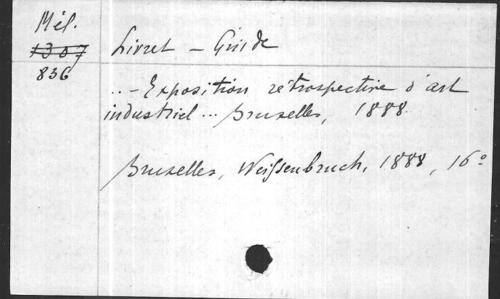 Mél.
1307
836
Livret - Guide
.. - Exposition rétrospective d'art
industriel... Bruxelles, 1888.
Bruxelles, Weißenbruch, 1888, 16°